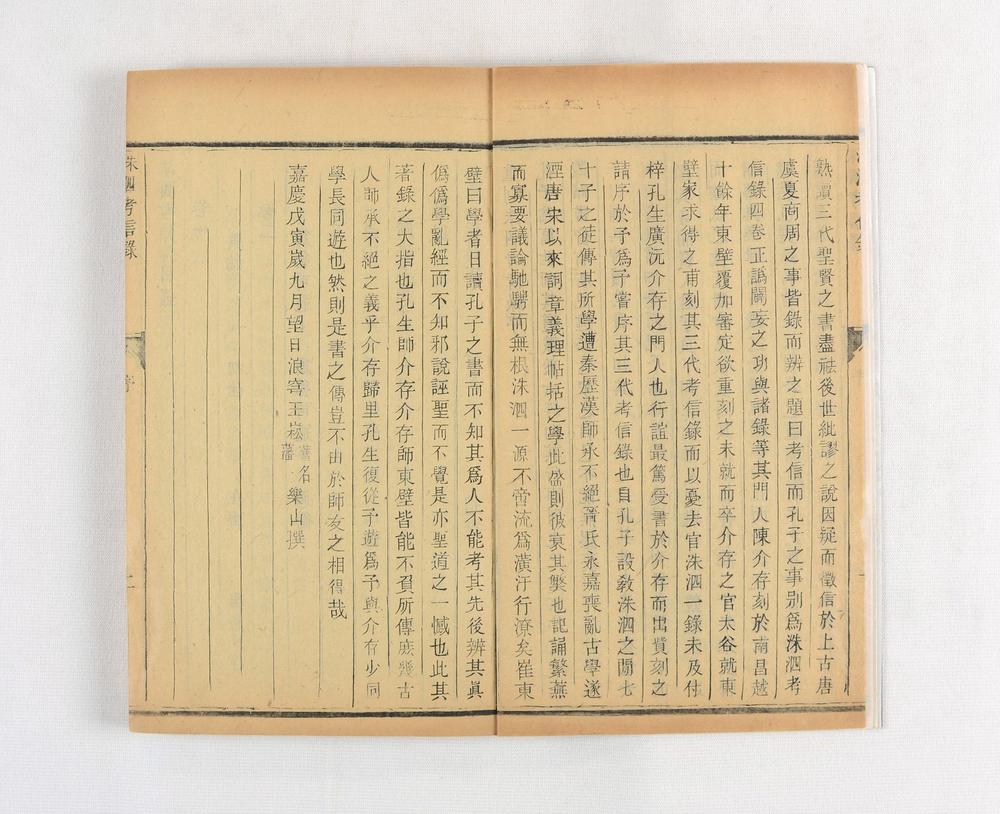 熟讀三代聖賢之書盡祛後世紕謬之說因疑而徵信於上古唐
虞夏商周之事皆錄而辨之題曰考信而孔子之事別爲洙泗考
信錄四卷正譌闢妄之功與諸錄等其門人陳介存刻於南昌越
十餘年東壁覆加審定欲重刻之未就而卒介存之官太谷就東
壁家求得之甫刻其三代考信錄而以憂去官洙泗一錄未及付
梓孔生廣沅介存之門人也行誼最篤受書於介存而出貲刻之
請序於予爲予嘗序其三代考信錄也自孔子設教洙泗之閒七
十子之徒傳其所學遭秦歷漢師承不絕晉氏永嘉喪亂古學遂
湮唐宋以來詞章義理帖括之學此盛則彼衰其獘也記誦繁蕪
而寡要議論馳騁而無根洙泗一源不啻流爲潢汙行潦矣崔東
壁曰學者日讀孔子之書而不知其爲人不能考其先後辨其眞
僞僞學亂經而不知邪說誣聖而不覺是亦聖道之一憾也此其
著錄之大指也孔生師介存介存師東壁皆能不負所傳庶幾古
人師承不絕之義乎介存歸里孔生復從予遊爲予與介存少同
學長同遊也然則是書之傳豈不由於師友之相得哉
嘉慶戊寅歲九月望日浪穹王崧
藩名樂山撰
洙泗考信錄
序
二